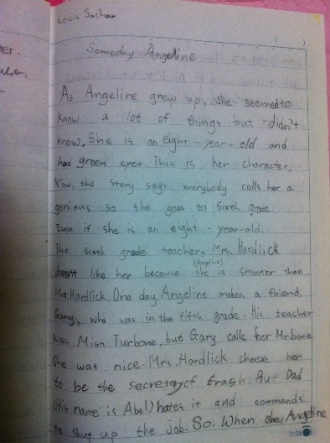 Louis Sachar
Someday Angeline
As Angeline grew up, she seemed to
know a lot of things but didn't
know. She is an eight-year-old and
has green eyes. This is her character.
Now, this story says everybody calls her a
genious so she goes to sixth grade.
Even if she is an eight-year-old.
The sixth grade teacher, Mrs. Hardlick
doesn't like her because she is smarter than
(Angeline)
Mrs. Hardlick. One day, Angeline makes a friend,
Gary, who was in the fifth grade. His teacher
was Miss Turbone, but Gary calls her Mr. bone
She was nice. Mrs. Hardlick chose her
to be the secretary of trash. But Dad
(his name is Abel) hates it and commands
to up the job. So. When she, Angeline